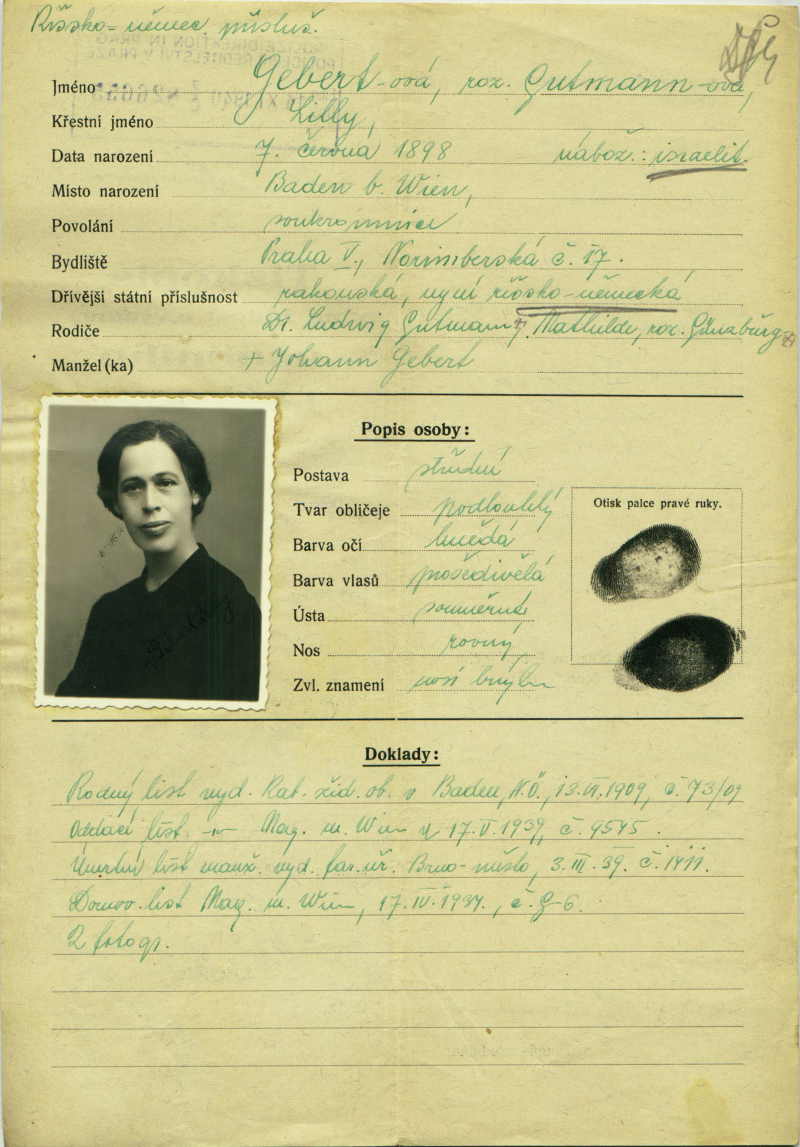 Říšsko-němec. přísluš.
Jméno Gebert-ová, roz. Gutmann-ová,
Křestní jméno Lilly,
Data narození 7. června 1898 nábož.: israelit.
Místo narození Baden b. Wien,
Povolání soukromnice
Bydliště Praha V., Norimberská č. 17.
Dřívější státní příslušnost rakouská, nyní říšsko-německá
Rodiče Dr. Ludwig Gutmann, Mathilde, roz. Günzburg
Manžel (ka) + Johann Gebert
Popis osoby:
Postava střední
Tvar obličeje podlouhlý
Barva očí hnědá
Barva vlasů prošedivělá
Ústa souměrná
Nos rovný
Zvl. znamení nosí brýle
Otisk palce pravé ruky.
Doklady:
Rodný list vyd. Rab. žid. ob. v Baden, N.Ö., 13.VI.1909, č. 73/09
Oddací list Mag. m. Wien 17.V.1939, č. 9545.
Úmrtní list manž. vyd. far. úř. Brno-město, 3.III.39. č. 1411.
Domov. list Mag. m. Wien, 17.IV.1937., č. G-6.
2 fotogr.